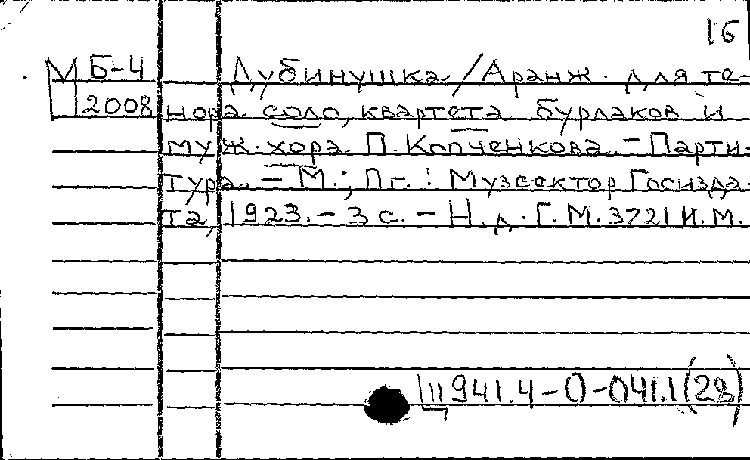 16
М Б-4
2008
Дубинушка / Аранж. для те-
нора соло, квартета бурлаков и
муж. хора П. Копченкова. - Парти-
тура. - М.; Пг.: Музсектор Госизда-
та, 1923. - 3 с. - Н. д. Г. М. 3721 И. М.
Щ941.4-0-041.1(28)